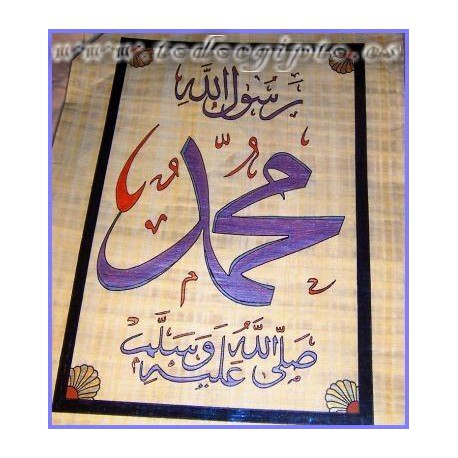 www.todoegipto.es
رسول الله
محمد
صلى الله عليه وسلم